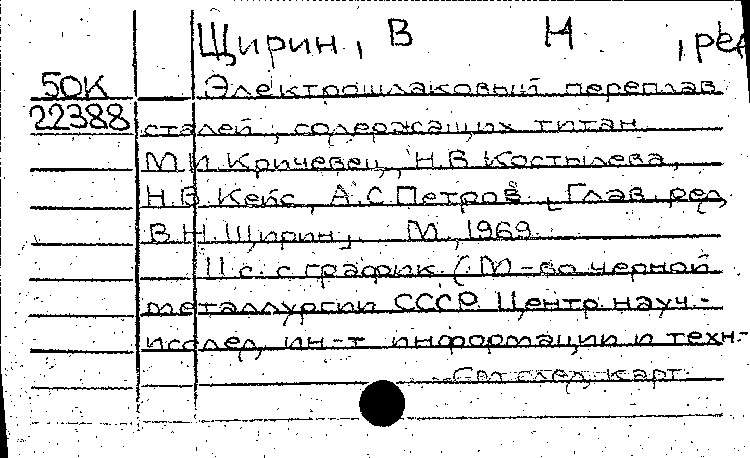 Щирин, В Н , ред
50К Электрошлаковый переплав
22388 сталей, содержащих титан.
М.И.Кричевец, Н.В.Костылева,
Н.В.Кейс, А.С.Петров [Глав. ред.
В.Н.Щирин]. М., 1969.
11 с. с график. (М-во черной
металлургии СССР. Центр. науч.-
исслед. ин-т информации и техн.-
См. след. карт.